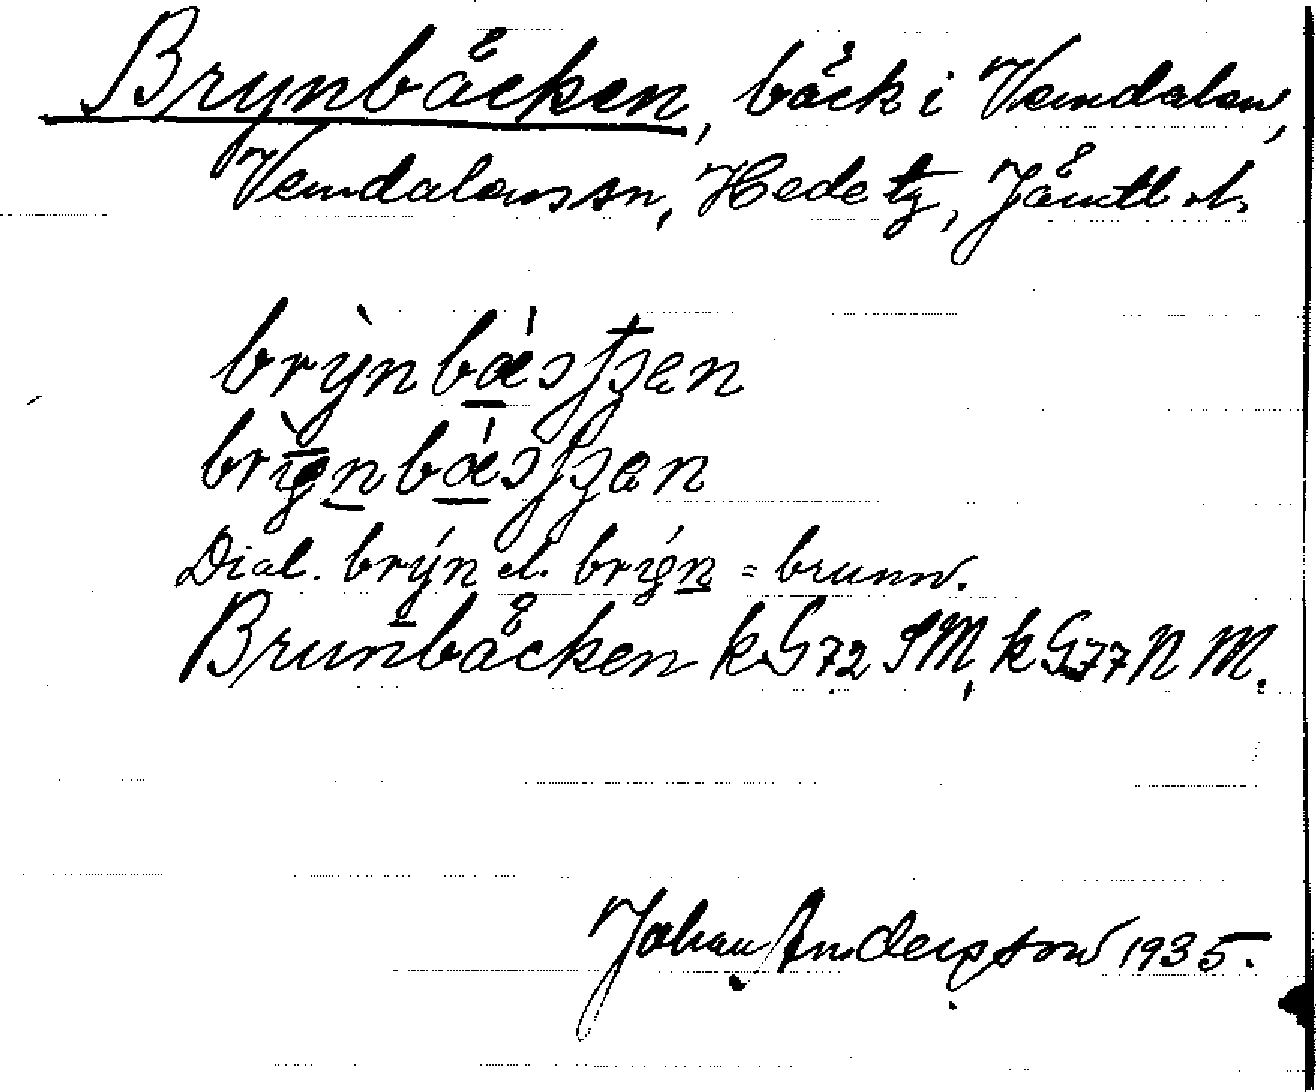 Brynbäcken, bäck i Vemdalen,
Vemdalens sn, Hede tg, Jämtl. l.
Dial. brýn el. = brunn.
Brunbäcken kG72 SM, kG77 NM.
Johan Andersson 1935.